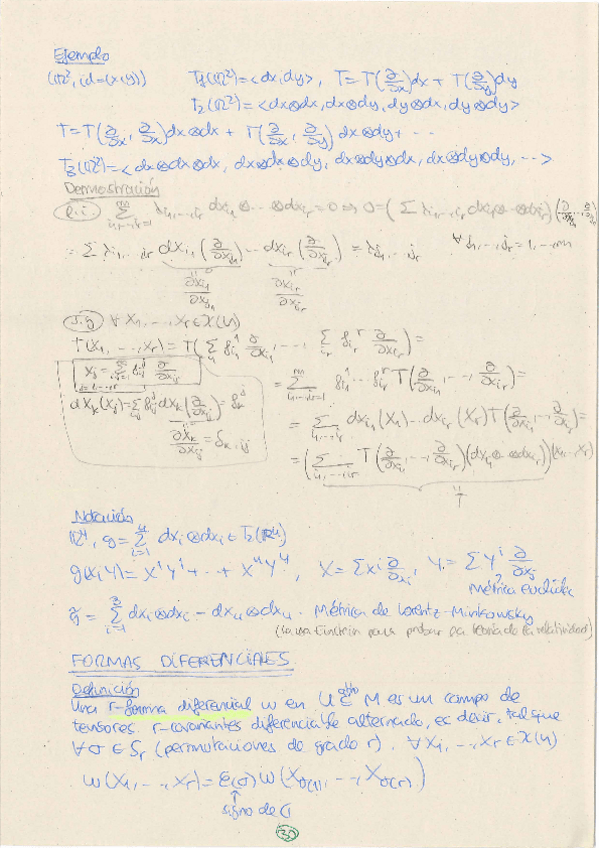 Ejemplo
(ℝ², id=(x,y)) T₁(ℝ²)=<dx,dy>, T=T(∂/∂x)dx + T(∂/∂y)dy
T₂(ℝ²)=<dx⊗dx, dx⊗dy, dy⊗dx, dy⊗dy>
T=T(∂/∂x, ∂/∂x)dx⊗dx + T(∂/∂x, ∂/∂y) dx⊗dy+ ...
T₃(ℝ²)=<dx⊗dx⊗dx, dx⊗dx⊗dy, dx⊗dy⊗dx, dx⊗dy⊗dy, ...>
Demostración
l.i. ∑ λi₁,...,ir dxi₁⊗...⊗dxir=0 ⇒ 0=(∑ λi₁,...,ir dxi₁⊗...⊗dxir)(∂/∂xj₁,...,∂/∂xjr)
= ∑ λi₁,...,ir dxi₁(∂/∂xj₁)...dxir(∂/∂xjr) = λj₁,...,jr ∀j₁,...,jr=1,...,m
∂xi₁/∂xj₁ ∂xir/∂xjr
s.g ∀ X₁,...,Xr∈𝔛(U)
T(X₁,...,Xr)=T(∑ fi₁¹ ∂/∂xi₁,..., ∑ firʳ ∂/∂xir)=
Xj=∑ fijʲ ∂/∂xij
j=1,...,r
= ∑ fi₁¹...firʳ T(∂/∂xi₁,...,∂/∂xir)=
dxk(Xj)=∑ fijʲ dxk(∂/∂xij)=fkʲ
∂xk/∂xij=δk,ij
= ∑ dxi₁(X₁)...dxir(Xr)T(∂/∂xi₁,...,∂/∂xir)=
=(∑ T(∂/∂xi₁,...,∂/∂xir)(dxi₁⊗...⊗dxir))(X₁,...,Xr)
T
Notación
ℝ⁴, g=∑ dxi⊗dxi∈T₂(ℝ⁴)
g(X,Y)= X¹Y¹+...+X⁴Y⁴, X=∑Xⁱ ∂/∂xi, Y=∑Yⁱ ∂/∂xi
Métrica euclídea
g̃=∑ dxi⊗dxi - dx₄⊗dx₄. Métrica de Lorentz-Minkowsky
(la usa Einstein para probar la teoría de la relatividad)
FORMAS DIFERENCIALES
Definición
Una r-forma diferencial ω en U ⊂ᵃᵇᵗᵒ M es un campo de
tensores r-covariantes diferenciable alternado, es decir, tal que
∀σ∈Sr (permutaciones de grado r). ∀X₁,...,Xr∈𝔛(U)
ω(X₁,...,Xr)=ε(σ)ω(Xσ(1),...,Xσ(r))
signo de σ
30